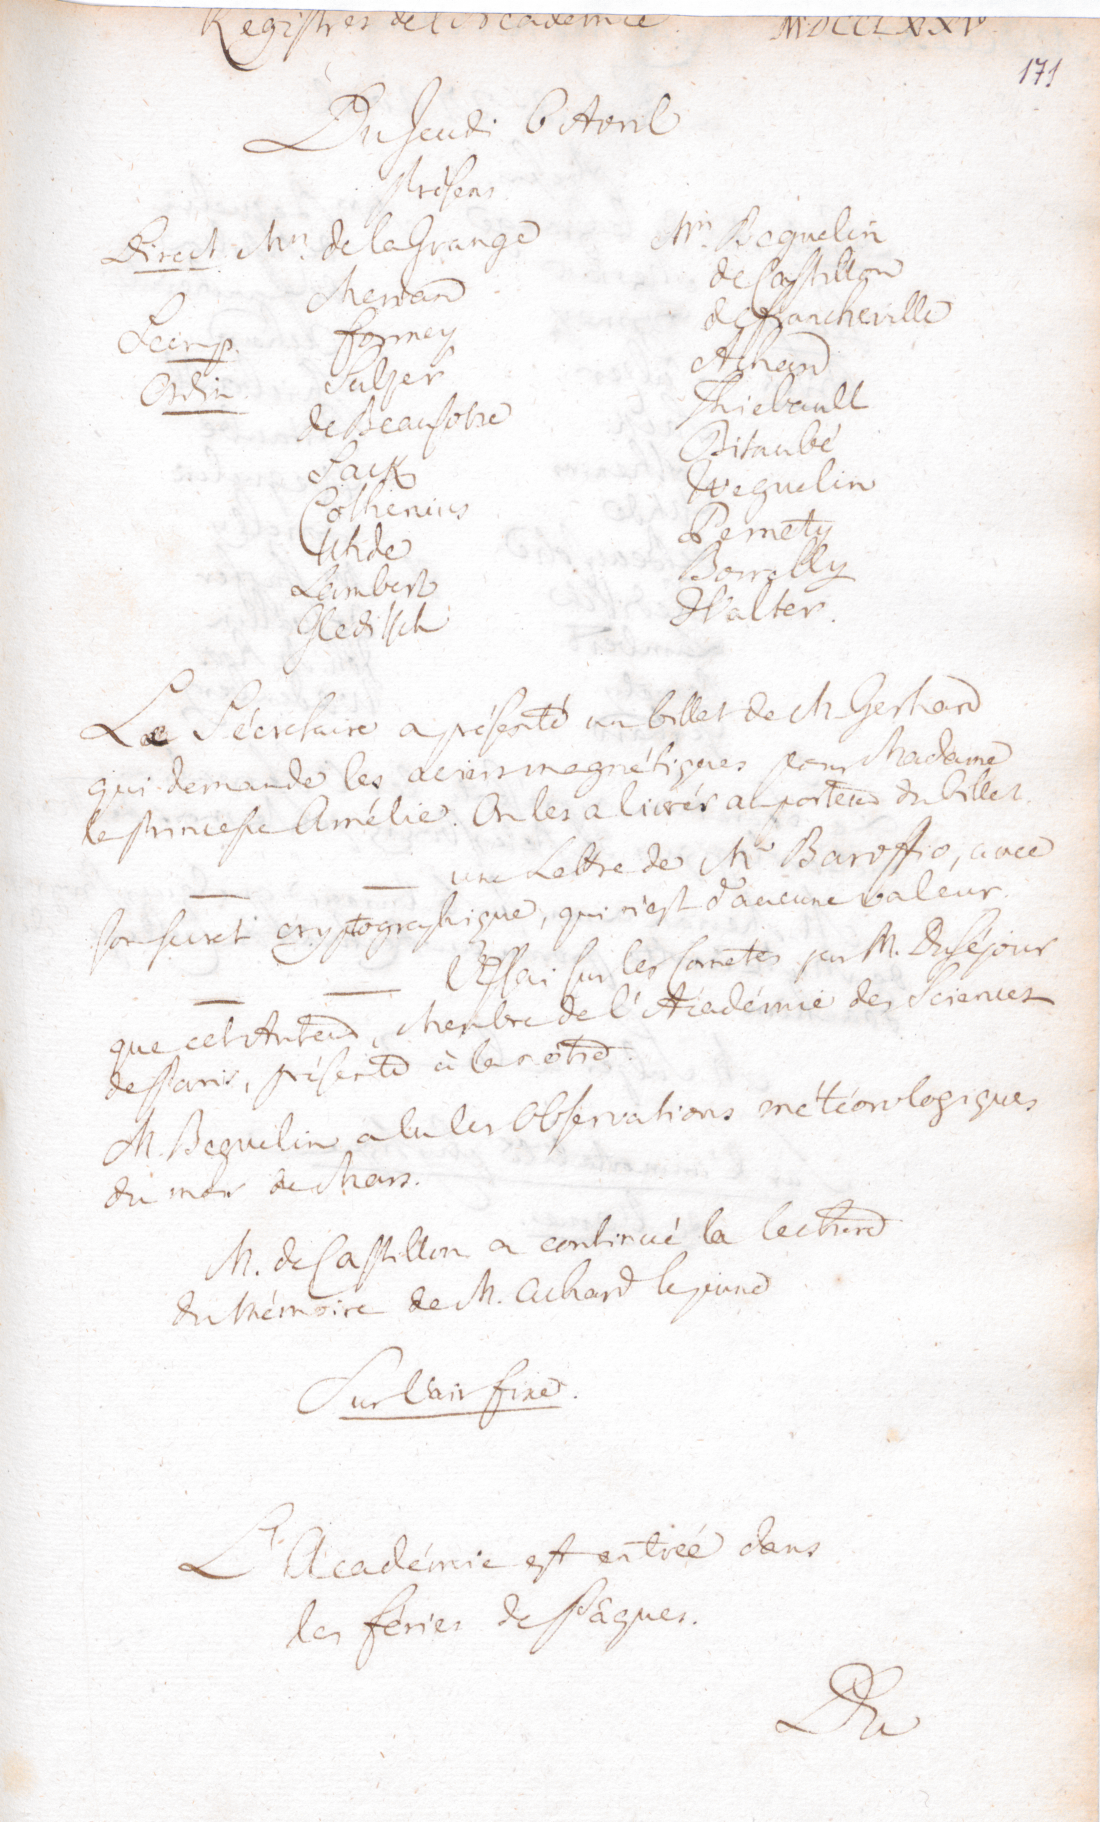 Registres de l'Academie. MDCCLXXV.
171
Du Jeudi 6 Avril
Présens
Direct. Mrs. de la Grange
Merian
Formey
Ordin. Sulzer
de Beausobre
Sack
Cothenius
Uhde
Lambert
Gleditsch
Mrs. Beguelin
de Castillon
de Francheville
Achard
Thiebault
Bitaubé
Weguelin
Pernety
Borrelly
Walter.
Le Sécrétaire a présenté un billet de M. Gerhard
qui demande les aciers magnétiques pour Madame
la Princesse Amélie. On les a livrés au porteur du billet.
— — une Lettre de Mr. Baroffio, avec
son secret cryptographique, qui n'est d'aucune valeur.
— — l'Essai sur les Cometes par M. Duséjour
que cet Auteur, Membre de l'Académie des Sciences
de Paris, présente à la notre.
M. Beguelin a lu les Observations météorologiques
du mois de Mars.
M. de Castillon a continué la lecture
du Mémoire de M. Achard le jeune
Sur l'air fixe.
L'Académie est entrée dans
les féries de Pâques.
Du